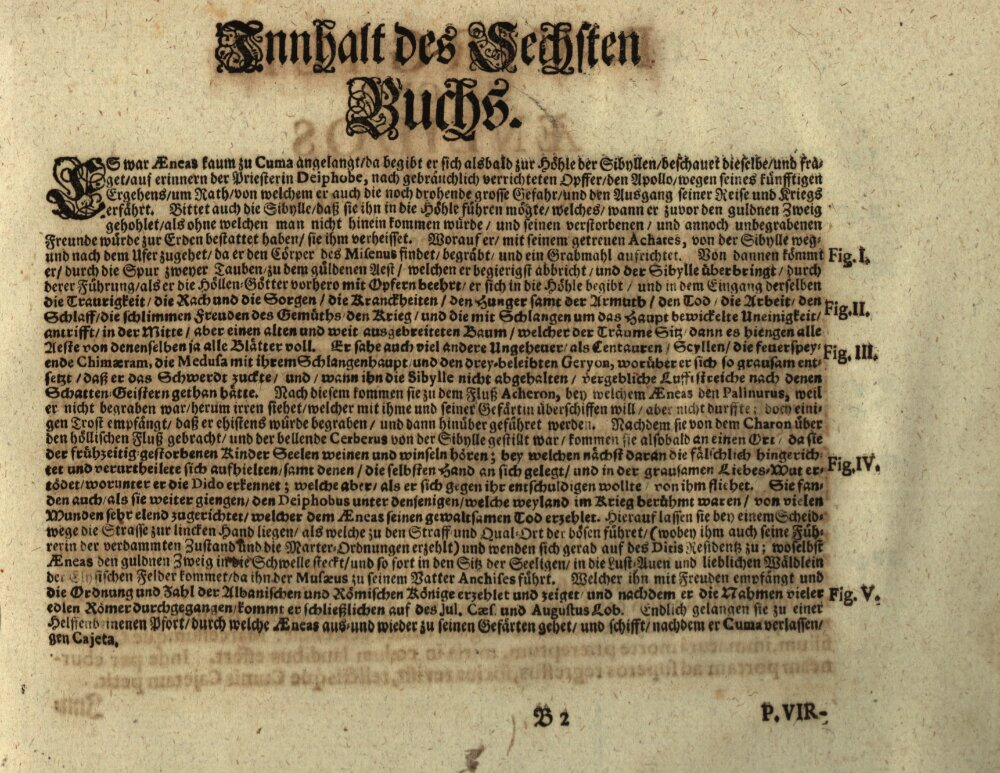 Innhalt des Sechsten
Buchs.
ES war Æneas kaum zu Cuma angelangt/da begibt er sich alsbald zur Höhle der Sibyllen/beschauet dieselbe/und fra-
get/auf erinnern der Priesterin Deiphobe, nach gebräuchlich verrichteten Opffer/den Apollo/wegen seines künfftigen
Ergehens/um Rath/von welchem er auch die noch drohende grosse Gefahr/und den Ausgang seiner Reise und Kriegs
erfährt. Bittet auch die Sibylle/daß sie ihn in die Höhle führen mögte/welches/wann er zuvor den guldnen Zweig
gehohlet/als ohne welchen man nicht hinein kommen würde/und seinen verstorbenen/und annoch unbegrabenen
Freunde würde zur Erden bestattet haben/sie ihm verheisset. Worauf er/mit seinem getreuen Achates, von der Sibylle weg-
und nach dem Ufer zugehet/da er den Cörper des Misenus findet/begräbt/und ein Grabmahl aufrichtet. Von dannen kömmt Fig. I.
er/durch die Spur zweyer Tauben/zu dem güldenen Aest/welchen er begierigst abbricht/und der Sibylle überbringt/durch
derer Führung/als er die Höllen-Götter vorhero mit Opffern beehrt/er sich in die Höhle begibt/und in dem Eingang derselben
die Traurigkeit/die Rach und die Sorgen/die Kranckheiten/den Hunger samt der Armuth/den Tod/die Arbeit/den Fig. II.
Schlaff/die schlimmen Freuden des Gemüths/den Krieg/und die mit Schlangen um das Haupt bewickelte Uneinigkeit/
antrifft/in der Mitte/aber einen alten und weit ausgebreiteten Baum/welcher der Träume Sitz/dann es hiengen alle
Aeste von denenselben ja alle Blätter voll. Er sahe auch viel andere Ungeheuer/als Centauren/Scyllen/die feuerspey- Fig. III.
ende Chimæram, die Medusa mit ihrem Schlangenhaupt/und den drey-beleibten Geryon, worüber er sich so grausam ent-
setzt/daß er das Schwerdt zuckte/und/wann ihn die Sibylle nicht abgehalten/vergebliche Lufftstreiche nach denen
Schatten-Geistern gethan hätte. Nach diesem kommen sie zu dem Fluß Acheron, bey welchem Æneas den Palinurus, weil
er nicht begraben war/herum irren siehet/welcher mit ihme und seiner Gefärtin überschiffen will/aber nicht durffte; doch eini-
gen Trost empfängt/daß er ehistens würde begraben/und dann hinüber geführet werden. Nachdem sie von dem Charon über
den höllischen Fluß gebracht/und der bellende Cerberus von der Sibylle gestillt war/kommen sie alsobald an einen Ort/da sie
der frühzeitig-gestorbenen Kinder Seelen weinen und winseln hören; bey welchen nächst daran die fälschlich hingerich- Fig. IV.
tet und verurtheilete sich aufhielten/samt denen/die selbsten Hand an sich gelegt/und in der grausamen Liebes-Wut er-
tödet/worunter er die Dido erkennet; welche aber/als er sich gegen ihr entschuldigen wollte/von ihm fliehet. Sie fan-
den auch/als sie weiter giengen/den Deiphobus unter denjenigen/welche weyland im Krieg berühmt waren/von vielen
Wunden sehr elend zugerichtet/welcher dem Æneas seinen gewaltsamen Tod erzehlet. Hierauf lassen sie bey einem Scheid-
wege die Strasse zur lincken Hand liegen/als welche zu den Straff und Qual-Ort der bösen führet/(wobey ihm auch seine Füh-
rerin der verdammten Zustand und die Marter-Ordnungen erzehlt) und wenden sich gerad auf des Ditis Residentz zu; woselbst
Æneas den guldnen Zweig in die Schwelle steckt/und so fort in den Sitz der Seeligen/in die Lust-Auen und lieblichen Wäldlein
der Elysischen Felder kommet/da ihn der Musæus zu seinem Vatter Anchises führt. Welcher ihn mit Freuden empfängt und
die Ordnung und Zahl der Albanischen und Römischen Könige erzehlet und zeiget/und nachdem er die Nahmen vieler Fig. V.
edlen Römer durchgegangen/kommt er schließlichen auf des Jul. Cæs. und Augustus Lob. Endlich gelangen sie zu einer
Helffenbeinenen Pfort/durch welche Æneas aus-und wieder zu seinen Gefärten gehet/und schifft/nachdem er Cuma verlassen/
gen Cajeta.
B 2
P. VIR-